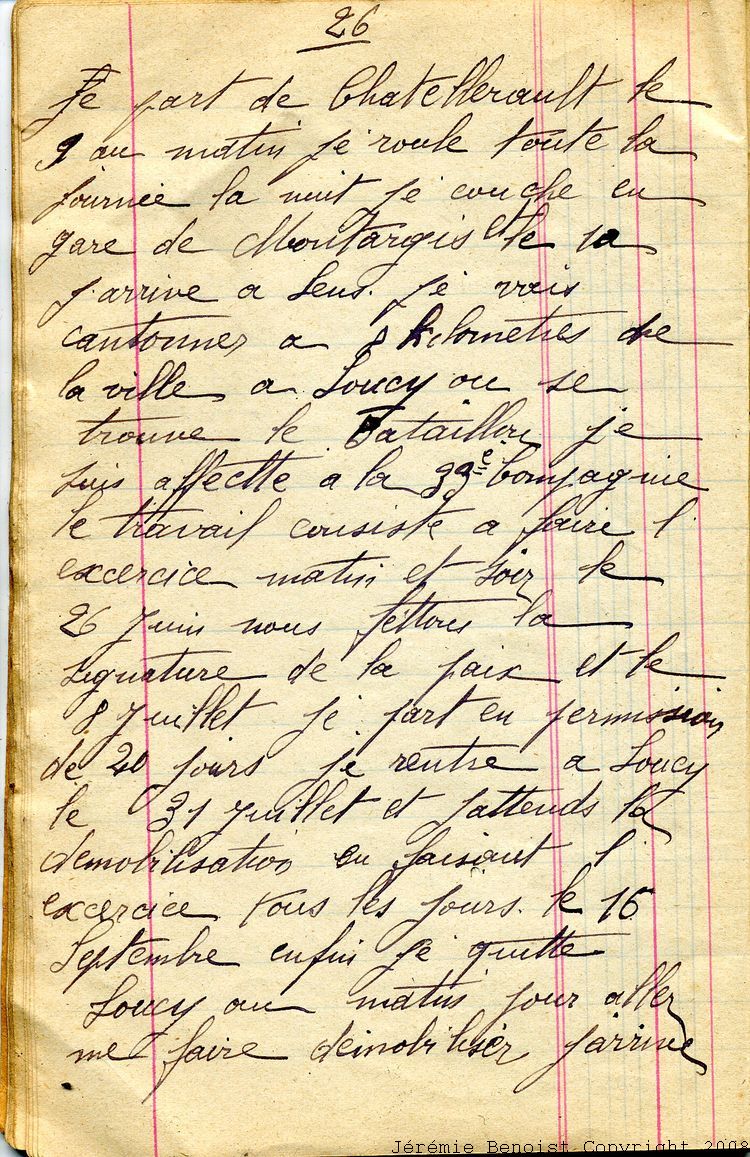 26
Je part de Chatellerault le
9 au matin je roule toute la
journée la nuit je couche en
gare de Montargis et le 10
j arrive a Sens. je vais
cantonner a 8 kilometres de
la ville a Soucy ou se
trouve le Bataillon je
suis affectte a la 33e Compagnie
le travail consiste a faire l
excercice matin et soir le
26 Juin nous fettons la
signature de la paix et le
8 Juillet je part en permission
de 20 jours je rentre a Soucy
le 31 Juillet et j attends la
demobilisation en faisant l
excercice tous les jours. le 16
Septembre enfin je quitte
Soucy au matin pour aller
me faire démobiliser j arrive
Jérémie Benoist Copyright 2008